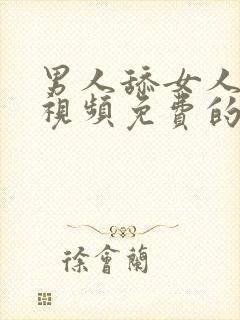 男人舔女人
視頻免費的
徐會蘭